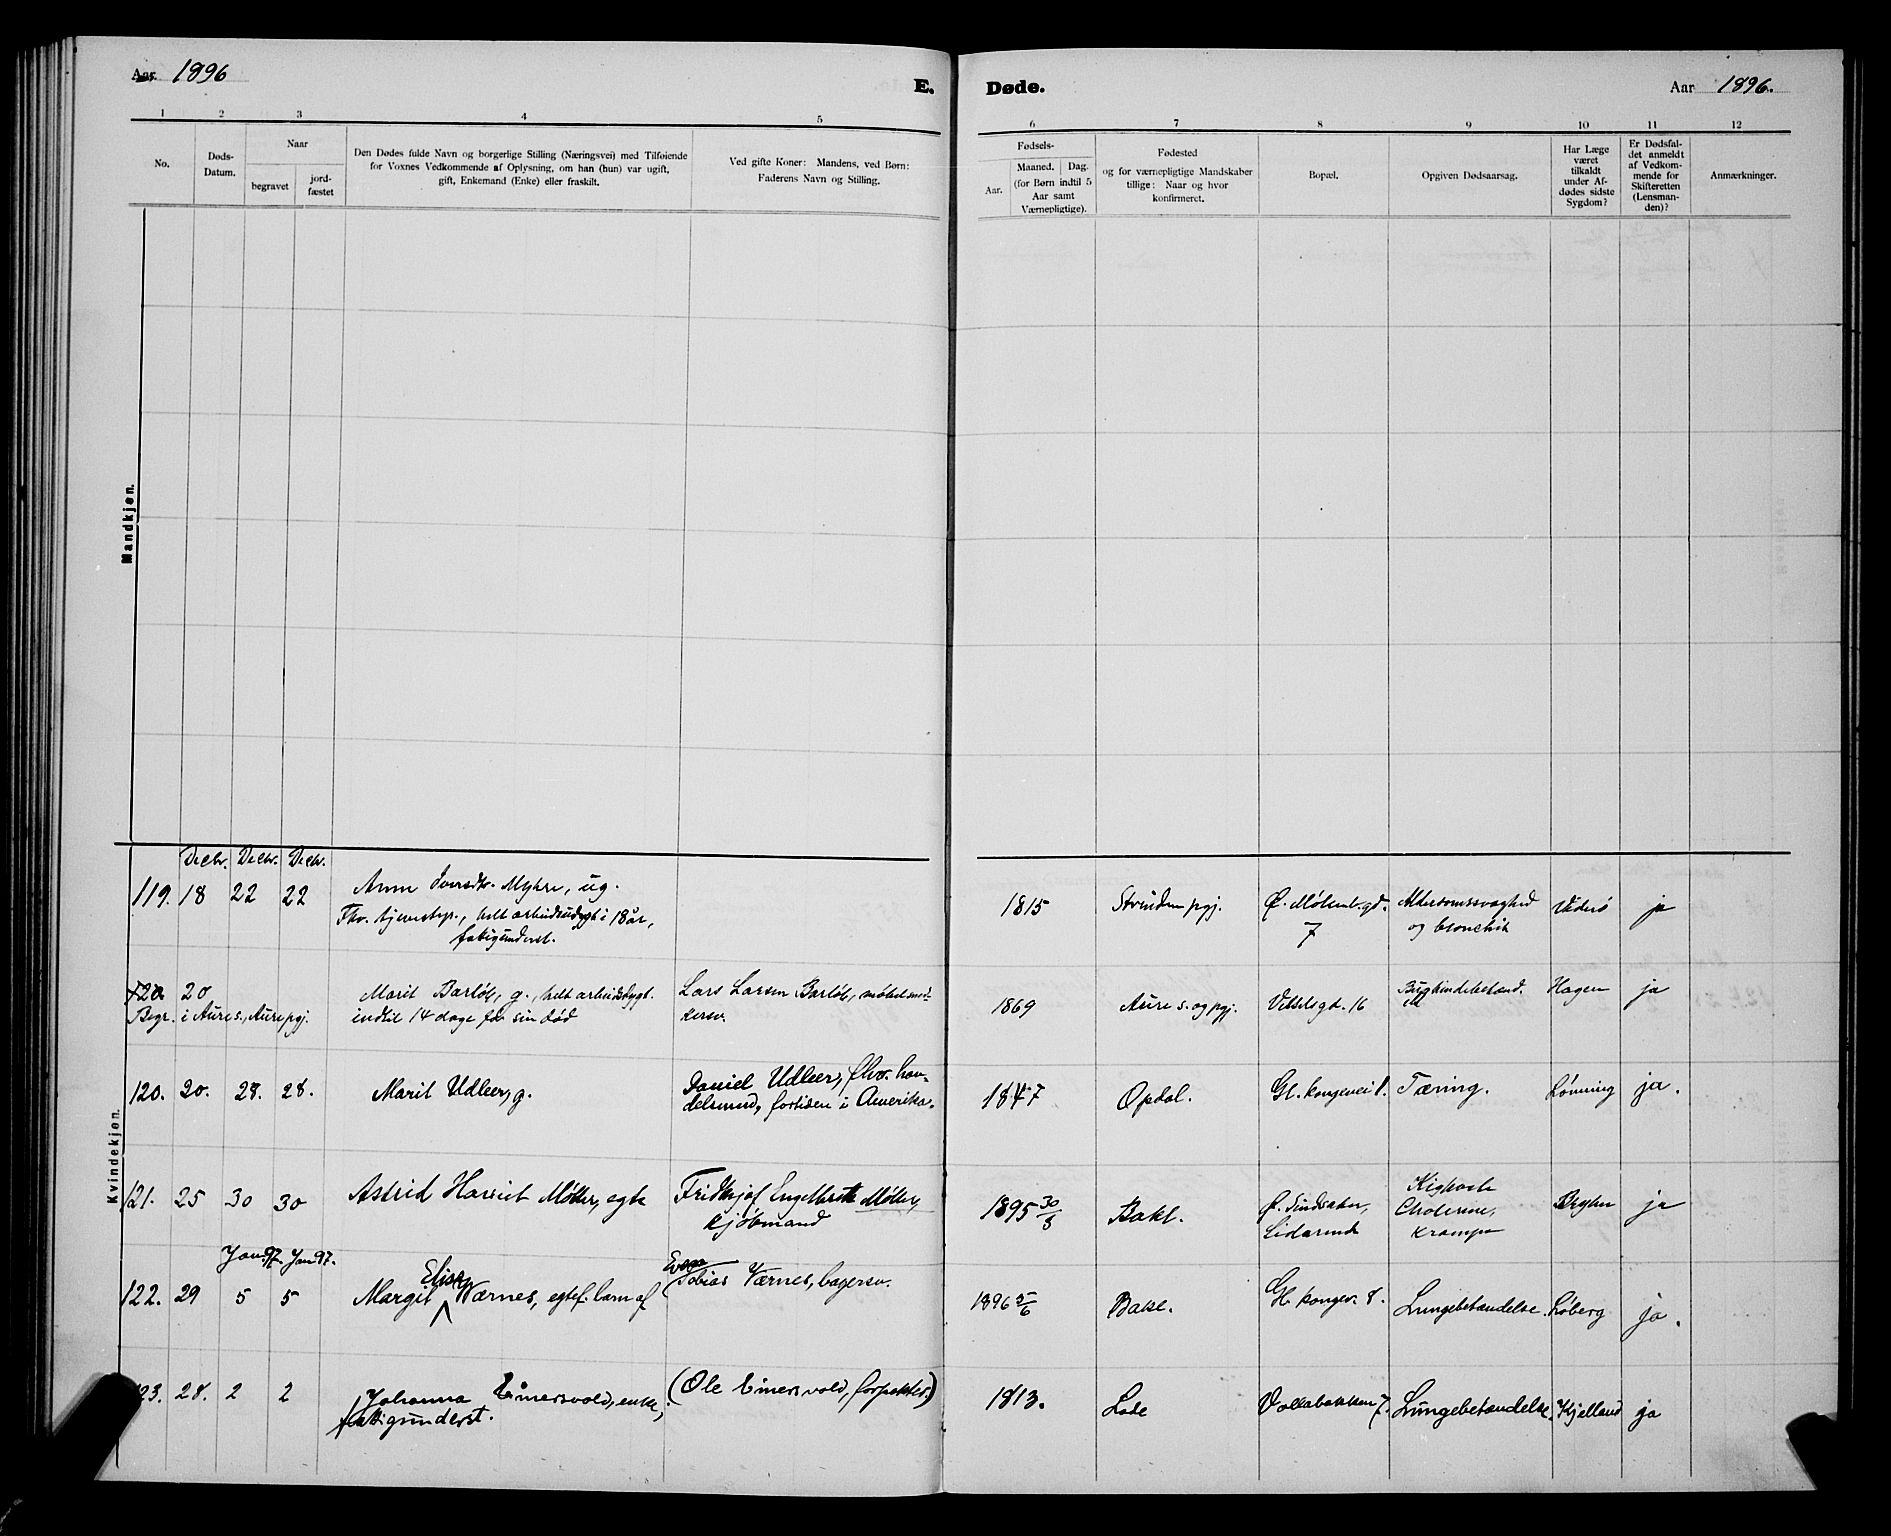 Aar 1896
E.
Døde.
Aar 1896.
1 2 3 4 5 6 7 8 9 10 11 12
No.
Døds-
Datum.
Naar
begravet
jord-
fæstet
Den Dødes fulde Navn og borgerlige Stilling (Næringsvei) med Tilføiende
for Voxnes Vedkommende af Oplysning, om han (hun) var ugift,
gift, Enkemand (Enke) eller fraskilt.
Ved gifte Koner: Mandens, ved Børn:
Faderens Navn og Stilling.
Fødsels-
Aar.
Maaned. Dag.
(for Børn indtil 5
Aar samt
Værnepligtige).
Fødested
og for værnepligtige Mandskaber
tillige: Naar og hvor
konfirmeret.
Bopæl.
Opgiven Dødsaarsag.
Har Læge
været
tilkaldt
under Af-
dødes sidste
Sygdom?
Er Dødsfal-
det anmeldt
af Vedkom-
mende for
Skifteretten
(Lensman-
den)?
Anmærkninger.
Mandkjøn.
Kvindekjøn.
Decbr. Decbr. Decbr.
119. 18 22 22
Anne Iversdtr. Myhre, ug.
Fhv. tjenestep., helt arbeidsudygt i 18 år,
fattigunderst.
1815
Strinden pgj.
Ø. Møllenb.gd.
7
Alderdomssvaghed
og bronchit
ja
20
Begr. i Aure s., Aure pgj.
Marit g., helt arbeidsdygt.
indtil 14 dage før sin død
Lars Larsen
1869
Aure s. og pgj.
16
Hagen
ja
120. 20. 28. 28.
Marit Udleer, g.
Daniel Udleer, fhv. han-
delsmand, fortiden i Amerika.
1847
Opdal.
Gl. kongevei 8.
Tæring.
Lønning
ja.
121. 25 30 30
Astrid Harriet Møller, egte
Fridtjof Engelbrett Møller,
kjøbmand
1895 30/8
Bakl.
Kighoste
Cholerine,
krampe
ja
Jan. 97. Jan 97.
122. 29 5 5
Margit Elisa Værnes, egtef. barn af
Tobias Værnes, bagersv.
1896 5/6
Bakl.
Gl. kongev. 8.
Lungebetændelse.
Løberg
ja.
123. 28. 2 2
Johanna Einersvold, enke,
fattigunderst.
(Ole Einersvold, forpakter.)
1813.
Lade
Voldabakken 7.
Lungebetændelse.
Kjelland
ja